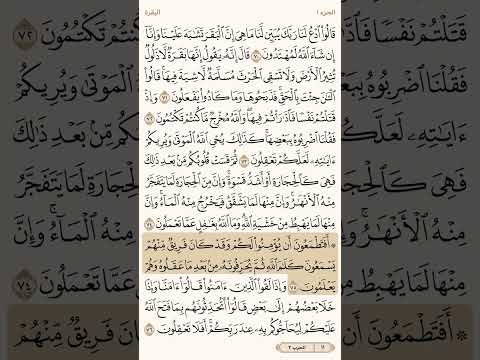 الجزء ١
البقرة
قَالُوا۟ ٱدْعُ لَنَا رَبَّكَ يُبَيِّن لَّنَا مَا هِىَ إِنَّ ٱلْبَقَرَ تَشَٰبَهَ عَلَيْنَا وَإِنَّآ
إِن شَآءَ ٱللَّهُ لَمُهْتَدُونَ ٧٠ قَالَ إِنَّهُۥ يَقُولُ إِنَّهَا بَقَرَةٌ لَّا ذَلُولٌ
تُثِيرُ ٱلْأَرْضَ وَلَا تَسْقِى ٱلْحَرْثَ مُسَلَّمَةٌ لَّا شِيَةَ فِيهَا قَالُوا۟
ٱلْـَٰٔنَ جِئْتَ بِٱلْحَقِّ فَذَبَحُوهَا وَمَا كَادُوا۟ يَفْعَلُونَ ٧١ وَإِذْ
قَتَلْتُمْ نَفْسًا فَٱدَّٰرَْٰٔتُمْ فِيهَا وَٱللَّهُ مُخْرِجٌ مَّا كُنتُمْ تَكْتُمُونَ ٧٢
فَقُلْنَا ٱضْرِبُوهُ بِبَعْضِهَا كَذَٰلِكَ يُحْىِ ٱللَّهُ ٱلْمَوْتَىٰ وَيُرِيكُمْ
ءَايَٰتِهِۦ لَعَلَّكُمْ تَعْقِلُونَ ٧٣ ثُمَّ قَسَتْ قُلُوبُكُم مِّنۢ بَعْدِ ذَٰلِكَ
فَهِىَ كَٱلْحِجَارَةِ أَوْ أَشَدُّ قَسْوَةً وَإِنَّ مِنَ ٱلْحِجَارَةِ لَمَا يَتَفَجَّرُ
مِنْهُ ٱلْأَنْهَٰرُ وَإِنَّ مِنْهَا لَمَا يَشَّقَّقُ فَيَخْرُجُ مِنْهُ ٱلْمَآءُ وَإِنَّ
مِنْهَا لَمَا يَهْبِطُ مِنْ خَشْيَةِ ٱللَّهِ وَمَا ٱللَّهُ بِغَٰفِلٍ عَمَّا تَعْمَلُونَ ٧٤
۞ أَفَتَطْمَعُونَ أَن يُؤْمِنُوا۟ لَكُمْ وَقَدْ كَانَ فَرِيقٌ مِّنْهُمْ
يَسْمَعُونَ كَلَٰمَ ٱللَّهِ ثُمَّ يُحَرِّفُونَهُۥ مِنۢ بَعْدِ مَا عَقَلُوهُ وَهُمْ
يَعْلَمُونَ ٧٥ وَإِذَا لَقُوا۟ ٱلَّذِينَ ءَامَنُوا۟ قَالُوٓا۟ ءَامَنَّا وَإِذَا
خَلَا بَعْضُهُمْ إِلَىٰ بَعْضٍ قَالُوٓا۟ أَتُحَدِّثُونَهُم بِمَا فَتَحَ ٱللَّهُ
عَلَيْكُمْ لِيُحَآجُّوكُم بِهِۦ عِندَ رَبِّكُمْ أَفَلَا تَعْقِلُونَ ٧٦
١١
الحزب ٢